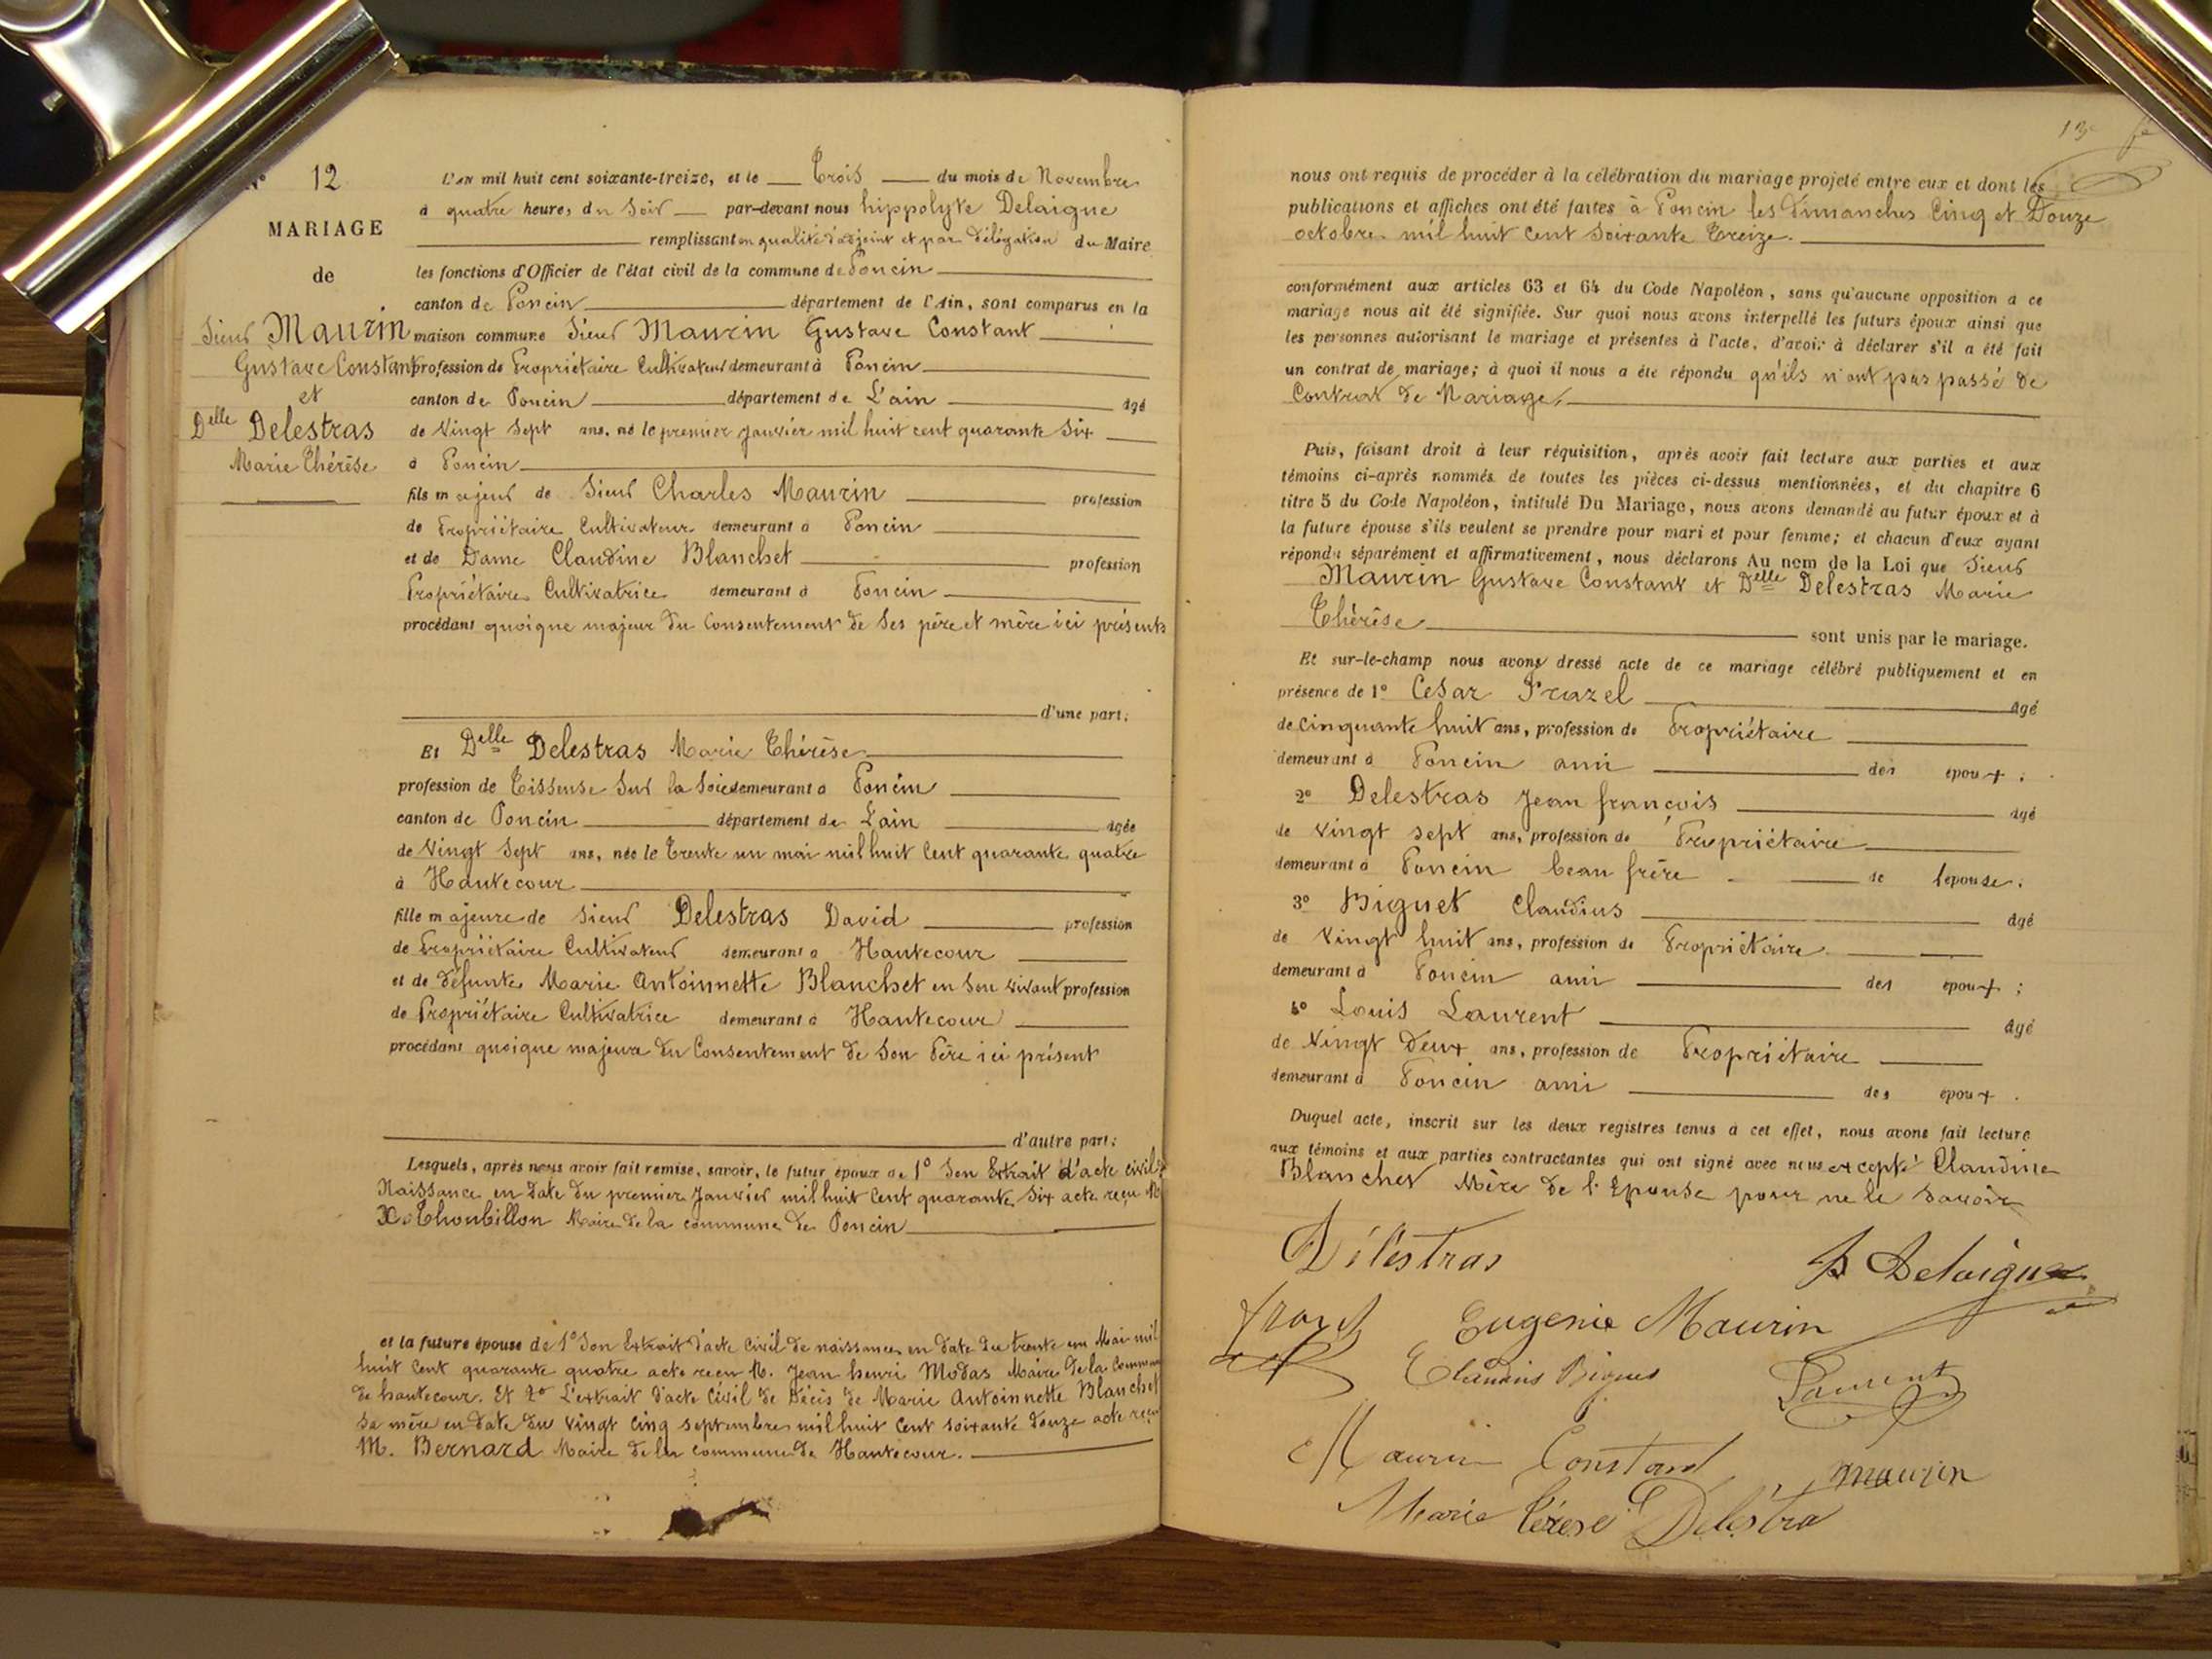 N° 12
MARIAGE
de
Sieur Maurin
Gustave Constant
et
Delle Delestras
Marie Thérèse
L'AN mil huit cent soixante-treize, et le Trois du mois de Novembre
à quatre heures du Soir par-devant nous hippolyte Delaigue
remplissant en qualité d'adjoint et par délégation du Maire
les fonctions d'Officier de l'état civil de la commune de Poncin
canton de Poncin département de l'Ain, sont comparus en la
maison commune Sieur Maurin Gustave Constant
profession de Propriétaire Cultivateur demeurant à Poncin
canton de Poncin département de L'ain âgé
de Vingt Sept ans, né le premier janvier mil huit cent quarante Six
à Poncin
fils majeur de Sieur Charles Maurin profession
de Propriétaire Cultivateur demeurant à Poncin
et de Dame Claudine Blanchet profession
Propriétaire Cultivatrice demeurant à Poncin
procédant quoique majeur du Consentement de Ses père et mère ici présents
d'une part;
Et Delle Delestras Marie Thérèse
profession de Tisseuse Sur la Soie demeurant à Poncin
canton de Poncin département de L'ain âgée
de Vingt Sept ans, née le Trente un mai mil huit Cent quarante quatre
à Hautecour
fille majeure de Sieur Delestras David profession
de Propriétaire Cultivateur demeurant à Hautecour
et de défunte Marie Antoinnette Blanchet en Son vivant profession
de Propriétaire Cultivatrice demeurant à Hautecour
procédant quoique majeure du Consentement de Son Père ici présent
d'autre part;
Lesquels, après nous avoir fait remise, savoir, le futur époux de 1° Son Extrait d'acte civil de
Naissance en date du premier Janvier mil huit Cent quarante Six acte reçu M
Thoubillon Maire de la commune de Poncin
et la future épouse de 1° Son Extrait d'acte Civil de naissance en date du trente un Mai mil
huit Cent quarante quatre acte reçu M. Jean henri Modas Maire de la Commune
de hautecour. Et 2° L'extrait d'acte Civil de Décès de Marie Antoinnette Blanchet
Sa mère en date du Vingt Cinq septembre mil huit Cent soixante douze acte reçu
M. Bernard Maire de la commune de Hautecour.
13e
nous ont requis de procéder à la célébration du mariage projeté entre eux et dont les
publications et affiches ont été faites à Poncin les Dimanches Cinq et Douze
octobre mil huit Cent Soixante Treize.
conformément aux articles 63 et 64 du Code Napoléon, sans qu'aucune opposition à ce
mariage nous ait été signifiée. Sur quoi nous avons interpellé les futurs époux ainsi que
les personnes autorisant le mariage et présentes à l'acte, d'avoir à déclarer s'il a été fait
un contrat de mariage; à quoi il nous a été répondu qu'ils n'ont pas passé de
Contrat de Mariage.
Puis, faisant droit à leur réquisition, après avoir fait lecture aux parties et aux
témoins ci-après nommés de toutes les pièces ci-dessus mentionnées, et du chapitre 6
titre 5 du Code Napoléon, intitulé Du Mariage, nous avons demandé au futur époux et à
la future épouse s'ils veulent se prendre pour mari et pour femme; et chacun d'eux ayant
répondu séparément et affirmativement, nous déclarons Au nom de la Loi que Sieur
Maurin Gustave Constant et Delle Delestras Marie
Thérèse sont unis par le mariage.
Et sur-le-champ nous avons dressé acte de ce mariage célébré publiquement et en
présence de 1° César Frazel âgé
de Cinquante huit ans, profession de Propriétaire
demeurant à Poncin ami des époux;
2° Delestras Jean françois âgé
de Vingt Sept ans, profession de Propriétaire
demeurant à Poncin beau frère de lepouse;
3° Biguet Claudius âgé
de Vingt huit ans, profession de Propriétaire
demeurant à Poncin ami des époux;
4° Louis Laurent âgé
de Vingt Deux ans, profession de Propriétaire
demeurant à Poncin ami des époux.
Duquel acte, inscrit sur les deux registres tenus à cet effet, nous avons fait lecture
aux témoins et aux parties contractantes qui ont signé avec nous excepté Claudine
Blanchet Mère de l'Epouse pour ne le Savoir
Délestras
H Delaigue
Eugenie Maurin
Claudius Biguet
Laurent
Maurin Constant
maurin
Marie Térese Délestra